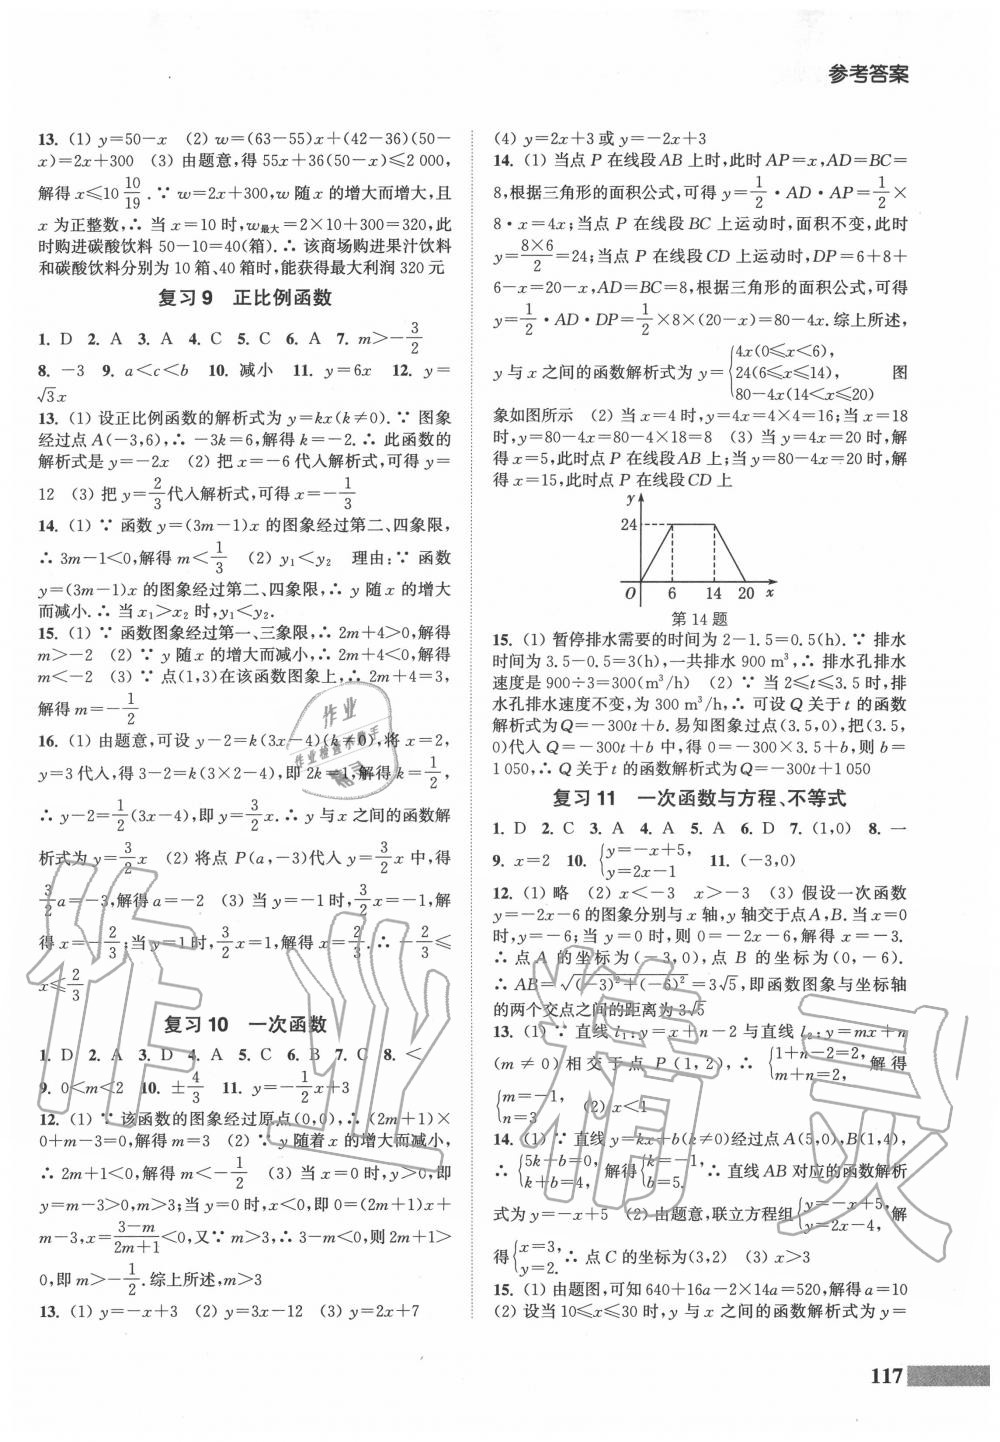 参考答案
13. (1) y=50-x (2) w=(63-55)x+(42-36)(50-
x)=2x+300 (3) 由题意,得 55x+36(50-x)≤2 000,
解得 x≤10 10/19. ∵ w=2x+300,w 随 x 的增大而增大,且
x 为正整数,∴ 当 x=10 时,w最大=2×10+300=320,此
时购进碳酸饮料 50-10=40(箱).∴ 该商场购进果汁饮料
和碳酸饮料分别为 10 箱、40 箱时,能获得最大利润 320 元
复习 9 正比例函数
1. D 2. A 3. A 4. C 5. C 6. A 7. m>-3/2
8. -3 9. a<c<b 10. 减小 11. y=6x 12. y=
√3x
13. (1) 设正比例函数的解析式为 y=kx(k≠0). ∵ 图象
经过点 A(-3,6),∴ -3k=6,解得 k=-2.∴ 此函数的
解析式是 y=-2x (2) 把 x=-6 代入解析式,可得 y=
12 (3) 把 y=2/3 代入解析式,可得 x=-1/3
14. (1) ∵ 函数 y=(3m-1)x 的图象经过第二、四象限,
∴ 3m-1<0,解得 m<1/3 (2) y₁<y₂ 理由:∵ 函数
y=(3m-1)x 的图象经过第二、四象限,∴ y 随 x 的增大
而减小.∴ 当 x₁>x₂ 时,y₁<y₂.
15. (1) ∵ 函数图象经过第一、三象限,∴ 2m+4>0,解得
m>-2 (2) ∵ y 随 x 的增大而减小,∴ 2m+4<0,解得
m<-2 (3) ∵ 点(1,3)在该函数图象上,∴ 2m+4=3,
解得 m=-1/2
16. (1) 由题意,可设 y-2=k(3x-4)(k≠0),将 x=2,
y=3 代入,得 3-2=k(3×2-4),即 2k=1,解得 k=1/2,
∴ y-2=1/2(3x-4),即 y=3/2x.∴ y 与 x 之间的函数解
析式为 y=3/2x (2) 将点 P(a,-3)代入 y=3/2x 中,得
3/2a=-3,解得 a=-2 (3) 当 y=-1 时,3/2x=-1,解
得 x=-2/3;当 y=1 时,3/2x=1,解得 x=2/3.∴ -2/3≤
x≤2/3
复习 10 一次函数
1. D 2. A 3. D 4. A 5. C 6. B 7. C 8. <
9. 0<m<2 10. ±4/3 11. y=-1/2x+3
12. (1) ∵ 该函数的图象经过原点(0,0),∴ (2m+1)×
0+m-3=0,解得 m=3 (2) ∵ y 随着 x 的增大而减小,
∴ 2m+1<0,解得 m<-1/2 (3) 当 x=0 时,y>0,即
y=m-3>0,m>3;当 y=0 时,x<0,即 0=(2m+1)x+
m-3,x=(3-m)/(2m+1)<0,又∵ m>3,∴ 3-m<0,则 2m+1>
0,即 m>-1/2.综上所述,m>3
13. (1) y=-x+3 (2) y=3x-12 (3) y=2x+7
(4) y=2x+3 或 y=-2x+3
14. (1) 当点 P 在线段 AB 上时,此时 AP=x,AD=BC=
8,根据三角形的面积公式,可得 y=1/2·AD·AP=1/2×
8·x=4x;当点 P 在线段 BC 上运动时,面积不变,此时
y=(8×6)/2=24;当点 P 在线段 CD 上运动时,DP=6+8+
6-x=20-x,AD=BC=8,根据三角形的面积公式,可得
y=1/2·AD·DP=1/2×8×(20-x)=80-4x.综上所述,
y 与 x 之间的函数解析式为 y={4x(0≤x<6), 24(6≤x≤14), 80-4x(14<x≤20) 图
象如图所示 (2) 当 x=4 时,y=4x=4×4=16;当 x=18
时,y=80-4x=80-4×18=8 (3) 当 y=4x=20 时,解
得 x=5,此时点 P 在线段AB 上;当 y=80-4x=20 时,解
得 x=15,此时点 P 在线段 CD 上
y
24
O 6 14 20 x
第 14 题
15. (1) 暂停排水需要的时间为 2-1.5=0.5(h). ∵ 排水
时间为 3.5-0.5=3(h),一共排水 900 m³,∴ 排水孔排水
速度是 900÷3=300(m³/h) (2) ∵ 当 2≤t≤3.5 时,排
水孔排水速度不变,为 300 m³/h,∴ 可设 Q 关于 t 的函数
解析式为Q=-300t+b.易知图象过点(3.5,0),把(3.5,
0)代入 Q=-300t+b 中,得 0=-300×3.5+b,则 b=
1 050,∴ Q 关于 t 的函数解析式为Q=-300t+1 050
复习 11 一次函数与方程、不等式
1. D 2. C 3. A 4. A 5. A 6. D 7. (1,0) 8. 一
9. x=2 10. {y=-x+5, y=2x-1 11. (-3,0)
12. (1) 略 (2) x<-3 x>-3 (3) 假设一次函数
y=-2x-6 的图象分别与 x 轴,y 轴交于点A,B.当 x=0
时,y=-6;当 y=0 时,则 0=-2x-6,解得 x=-3.
∴ 点 A 的坐标为(-3,0),点 B 的坐标为(0,-6).
∴ AB=√((-3)²+(-6)²)=3√5,即函数图象与坐标轴
的两个交点之间的距离为 3√5
13. (1) ∵ 直线 l₁:y=x+n-2 与直线 l₂:y=mx+n
(m≠0)相交于点 P(1,2),∴ {1+n-2=2, m+n=2, 解得
{m=-1, n=3 (2) x<1
14. (1) ∵ 直线 y=kx+b(k≠0)经过点 A(5,0),B(1,4),
∴ {5k+b=0, k+b=4, 解得{k=-1, b=5. ∴ 直线 AB 对应的函数解析
式为 y=-x+5 (2) 由题意,联立方程组{y=-x+5, y=2x-4, 解
得{x=3, y=2. ∴ 点 C 的坐标为(3,2) (3) x>3
15. (1) 由题图,可知 640+16a-2×14a=520,解得 a=10
(2) 设当 10≤x≤30 时,y 与 x 之间的函数解析式为 y=
117
作业精灵
作业
作业检查小帮手
精灵